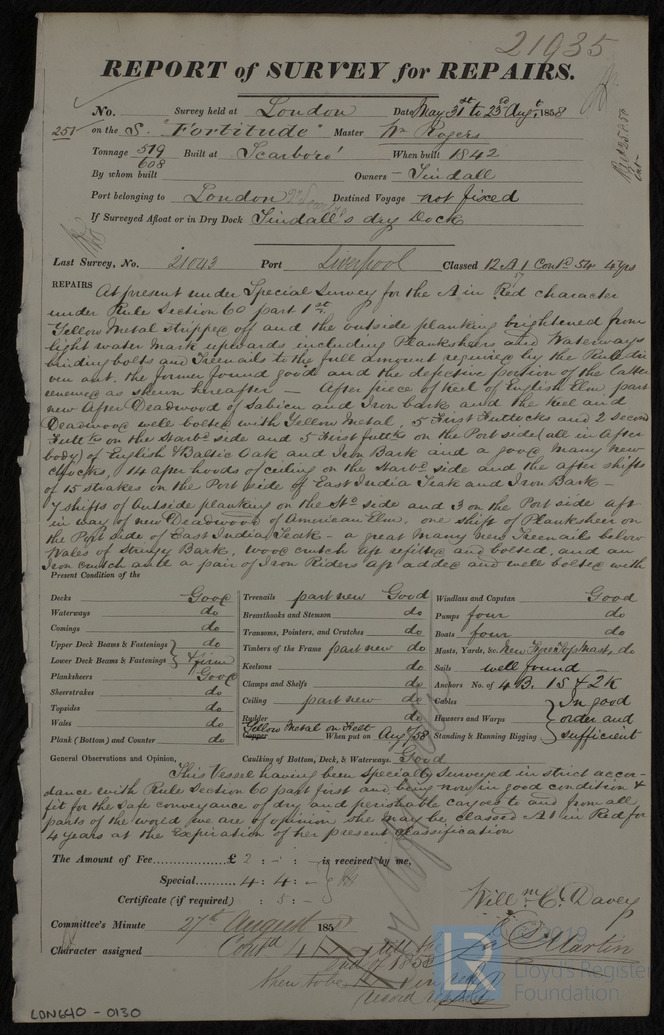 21935
REPORT of SURVEY for REPAIRS.
No. Survey held at London Date May 31st to 23d Augt 1858
251 on the S. "Fortitude" Master Wm Rogers
Tonnage 519 608 Built at Scarboro' When built 1842
By whom built Owners - Tindall
Port belonging to London Destined Voyage not fixed
If Surveyed Afloat or in Dry Dock Tindall's dry Dock
Last Survey, No. 21043 Port Liverpool Classed 12 A 1 Contd 54 4 yrs
REPAIRS At present under Special Survey for the A in Red character
under Rule Section 60 part 1st.
Yellow Metal stripped off and the outside planking brightened from
light water mark upwards including Planksheers and Waterways
binding bolts and Treenails to the full amount required by the Rule dri
ven out, the former found good and the defective portion of the latter
renewed as shewn hereafter — After piece of Keel of English Elm part
new After Deadwood of Sabicu and Iron bark and the Keel and
Deadwood well bolted with Yellow Metal, 5 First Futtocks and 2 second
Futtks on the Starbd side and 5 First futtks on the Port side (all in After
body) of English & Baltic Oak and Iron Bark and a good many new
chocks, 14 after hoods of ceiling on the Starbd side and the after shifts
of 15 strakes on the Port side of East India Teak and Iron Bark —
7 shifts of outside planking on the Sd side and 3 on the Port side aft
in way of new Deadwood of American Elm, one shift of Planksheer on
the Port side of East India Teak - a great many new Treenails below
Wales of Stringy Bark, wood crutch aft refitted and bolted, and an
Iron crutch and a pair of Iron Riders aft added and well bolted with
Present Condition of the
Decks Good
Waterways do
Comings do
Upper Deck Beams & Fastenings do
Lower Deck Beams & Fastenings & firm
Planksheers Good
Sheerstrakes do
Topsides do
Wales do
Plank (Bottom) and Counter do
Treenails part new Good
Breasthooks and Stemson do
Transoms, Pointers, and Crutches do
Timbers of the Frame part new do
Keelsons do
Clamps and Shelfs do
Ceiling part new do
Rudder do
Yellow Metal on Felt
Copper When put on Aug/58
Caulking of Bottom, Deck, & Waterways. Good
Windlass and Capstan Good
Pumps four do
Boats four do
Masts, Yards, &c. New Fore Topmast, do
Sails well found
Anchors No. of 4 B. 1 S & 2 K
Cables In good
Hawsers and Warps order and
Standing & Running Rigging sufficient
General Observations and Opinion,
This Vessel having been specially surveyed in strict accor-
dance with Rule Section 60 part first and being now in good condition &
fit for the safe conveyance of dry and perishable cargoes to and from all
parts of the world we are of opinion she may be classed A1 in Red for
4 years at the Expiration of her present classification
The Amount of Fee £ 2 : - : - is received by me,
Special 4 : 4 : -
Certificate (if required) : 5 : -
Willm C. Davey
Jas Martin
Committee's Minute 27th August 1858
Character assigned Contd
then to be in red
© 2019
LR
Lloyd's Register
Foundation
LDN640-0130